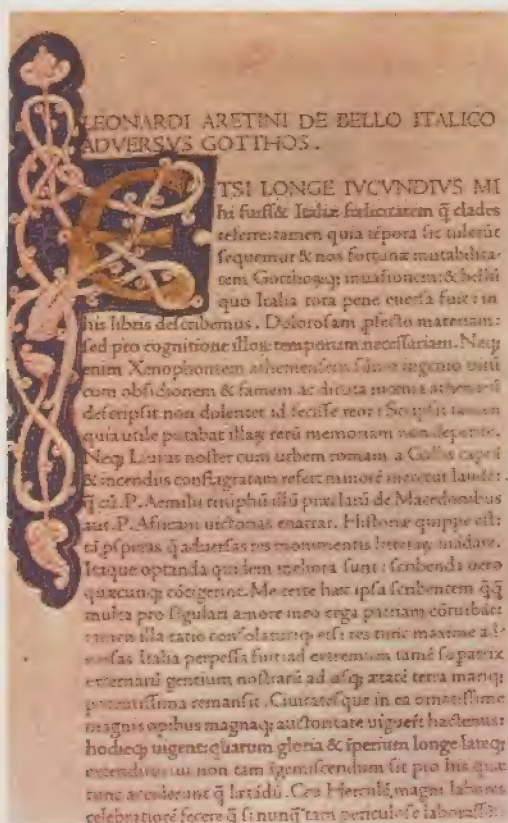 LEONARDI ARETINI DE BELLO ITALICO
ADVERSVS GOTTHOS.
ETSI LONGE IVCVNDIVS MI
hi fuiss& Italiæ fœlicitatem q̃ clades
referre: tamen quia tẽpora sic tulerũt
sequemur & nos fortunæ mutabilita-
tem Gotthorũq; inuasionem: & bellũ
quo Italia tota pene euersa fuit: in
his libris describemus. Dolorosam ,pfecto materiam:
sed pro cognitione illoꝝ temporum necessariam. Neq;
enim Xenophontem atheniensem ingenio uirũ
cum obsidionem & famem ac diruta mœnia atheniẽsiũ
descripsit non dolenter id fecisse reor: Scripsit tamen
quia utile putabat illaꝝ rerũ memoriam non deperire.
Neq; Liuius noster cum urbem romam a Gallis captã
& incendio conflagratam refert minorẽ meretur laudẽ:
q̃ cũ. P. Aemilii triũphũ illũ præclarũ de Macedonibus
aut. P. Africani uictorias enarrat. Historiæ quippe est:
tã ,psperas q̃ aduersas res monumentis litteraꝝ mãdare.
Itaque optanda quidem meliora sunt: scribenda uero
quæcunq; cõtigerint. Me certe hæc ipsa scribentem q̃q̃
multa pro sĩgulari amore meo erga patriam cõturbãt:
tamen illa ratio consolatur: q etsi res tunc maxime ad-
uersas Italia perpessa fuit: ad extremum tamẽ superatrix
externarũ gentium nostrarũ ad usq; ætatẽ terra mariq;
potentissima remansit. Ciuitatesque in ea ornatissime
magnis opibus magnaq; auctoritate uiguerũt hactenus:
hodieq; uigent: quarum gloria & ĩperium longe lateq;
extenduntur non tam ĩgemiscendum sit pro his quæ
tunc acciderunt q̃ lætãdũ. Ceu Herculẽ, magni labores
celebratiorẽ fecere q̃ si nunq̃ tam periculose laborass&: